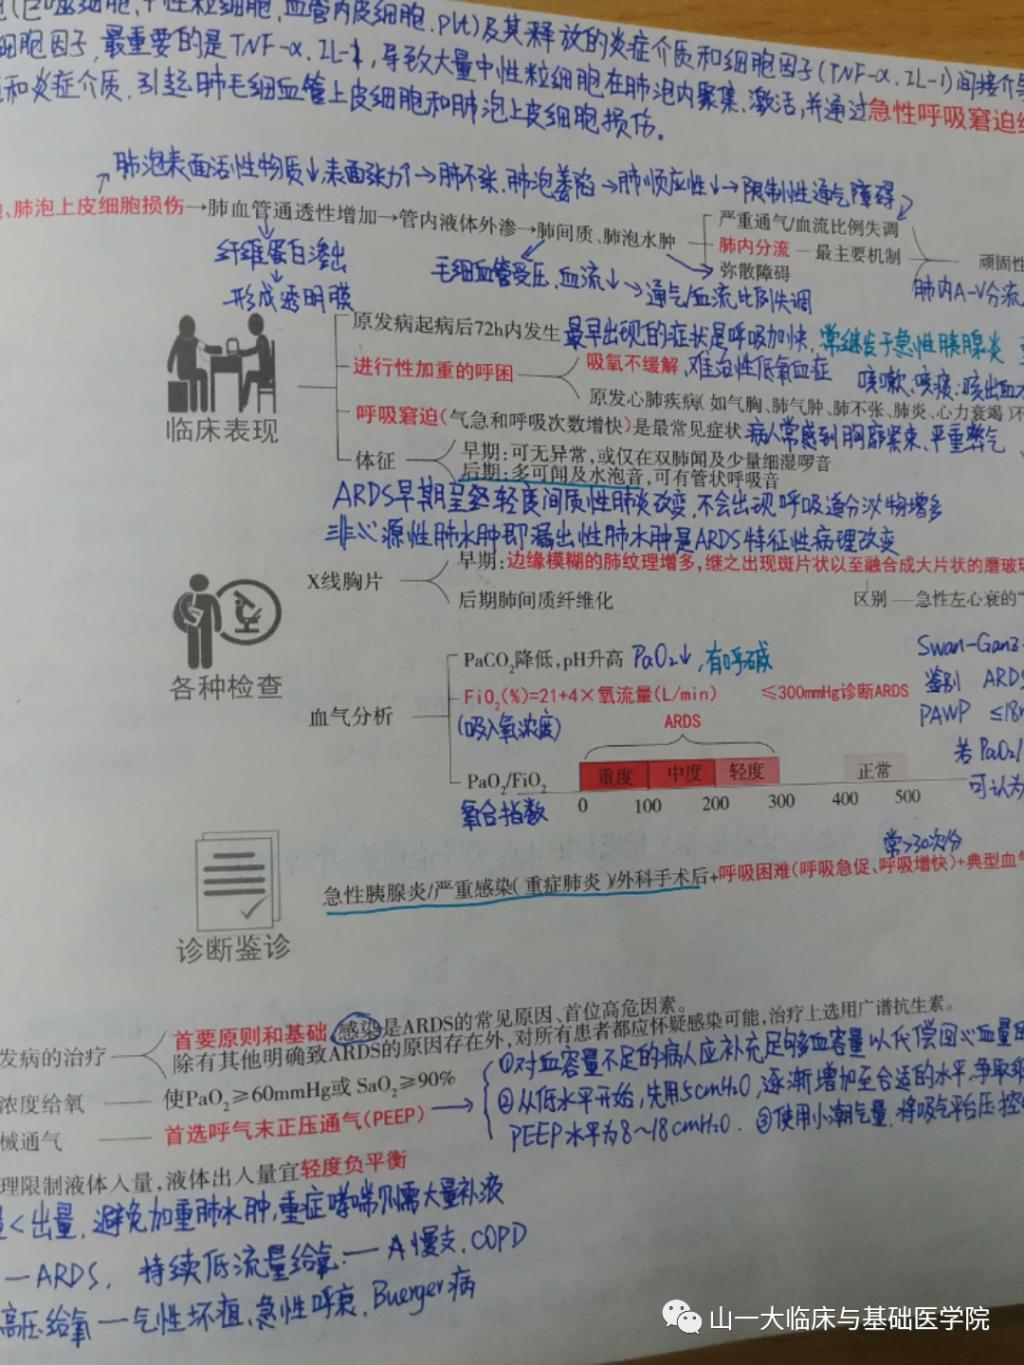 (巨噬细胞、中性粒细胞、血管内皮细胞、plt)及其释放的炎症介质和细胞因子(TNF-α、IL-1)间接介导
细胞因子,最重要的是TNF-α、IL-1,导致大量中性粒细胞在肺泡内聚集、激活,并通过急性呼吸窘迫综
和炎症介质,引起肺毛细血管上皮细胞和肺泡上皮细胞损伤。
肺泡表面活性物质↓,表面张力↑→肺不张、肺泡萎陷→肺顺应性↓→限制性通气障碍
、肺泡上皮细胞损伤→肺血管通透性增加→管内液体外渗→肺间质、肺泡水肿
严重通气/血流比例失调
肺内分流—最主要机制
弥散障碍
顽固性
肺内A-V分流
纤维蛋白渗出
形成透明膜
毛细血管受压,血流↓→通气/血流比例失调
临床表现
原发病起病后72h内发生 最早出现的症状是呼吸加快,常继发于急性胰腺炎
进行性加重的呼困
吸氧不缓解,难治性低氧血症
咳嗽、咳痰:咳出血水
原发心肺疾病(如气胸、肺气肿、肺不张、肺炎、心力衰竭)不
呼吸窘迫(气急和呼吸次数增快)是最常见症状 病人常感到胸廓紧束、严重憋气
体征
早期:可无异常,或仅在双肺闻及少量细湿啰音
后期:多可闻及水泡音,可有管状呼吸音
ARDS早期呈轻度间质性肺炎改变,不会出现呼吸道分泌物增多
非心源性肺水肿即漏出性肺水肿是ARDS特征性病理改变
各种检查
X线胸片
早期:边缘模糊的肺纹理增多,继之出现斑片状以至融合成大片状的磨玻璃
后期肺间质纤维化
区别—急性左心衰的“
血气分析
PaCO₂降低,pH升高 PaO₂↓,有呼碱
FiO₂(%)=21+4×氧流量(L/min) ≤300mmHg诊断ARDS
(吸入氧浓度)
ARDS
PaO₂/FiO₂
氧合指数
重度 中度 轻度 正常
0 100 200 300 400 500
Swan-Ganz
鉴别 ARDS
PAWP ≤18m
若PaO₂/
可认为
诊断鉴诊
常>30次/分
急性胰腺炎/严重感染(重症肺炎)/外科手术后+呼吸困难(呼吸急促、呼吸增快)+典型血气
发病的治疗
首要原则和基础 感染是ARDS的常见原因、首位高危因素。
除有其他明确致ARDS的原因存在外,对所有患者都应怀疑感染可能,治疗上选用广谱抗生素。
浓度给氧——使PaO₂≥60mmHg或SaO₂≥90%
械通气——首选呼气末正压通气(PEEP)→
①对血容量不足的病人应补充足够血容量以代偿回心血量的
②从低水平开始,先用5cmH₂O,逐渐增加至合适的水平,争取
PEEP水平为8~18cmH₂O. ③使用小潮气量,将吸气平台压控
理限制液体入量,液体出入量宜轻度负平衡
量<出量,避免加重肺水肿,重症哮喘则需大量补液
—ARDS, 持续低流量给氧—A慢支、COPD
高压给氧—气性坏疽、急性呼衰、Buerger病
山一大临床与基础医学院